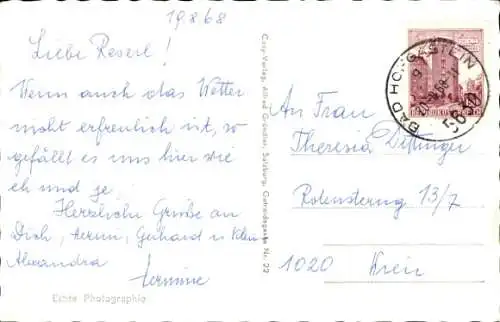 19.8.68
Liebe Reserl!
Wenn auch das Wetter
nicht erfreulich ist, so
gefällt es uns hier wie
eh und je.
Herzliche Grüße an
Dich, Hermi, Gerhard u. Klein
Alexandra
Hermine
Echte Photographie
Cosy-Verlag, Alfred Gründler, Salzburg, Getreidegasse Nr. 22
BAD HOFGASTEIN
5630
An Frau
Theresia Dettinger
Rotensterng 13/7
1020 Wien